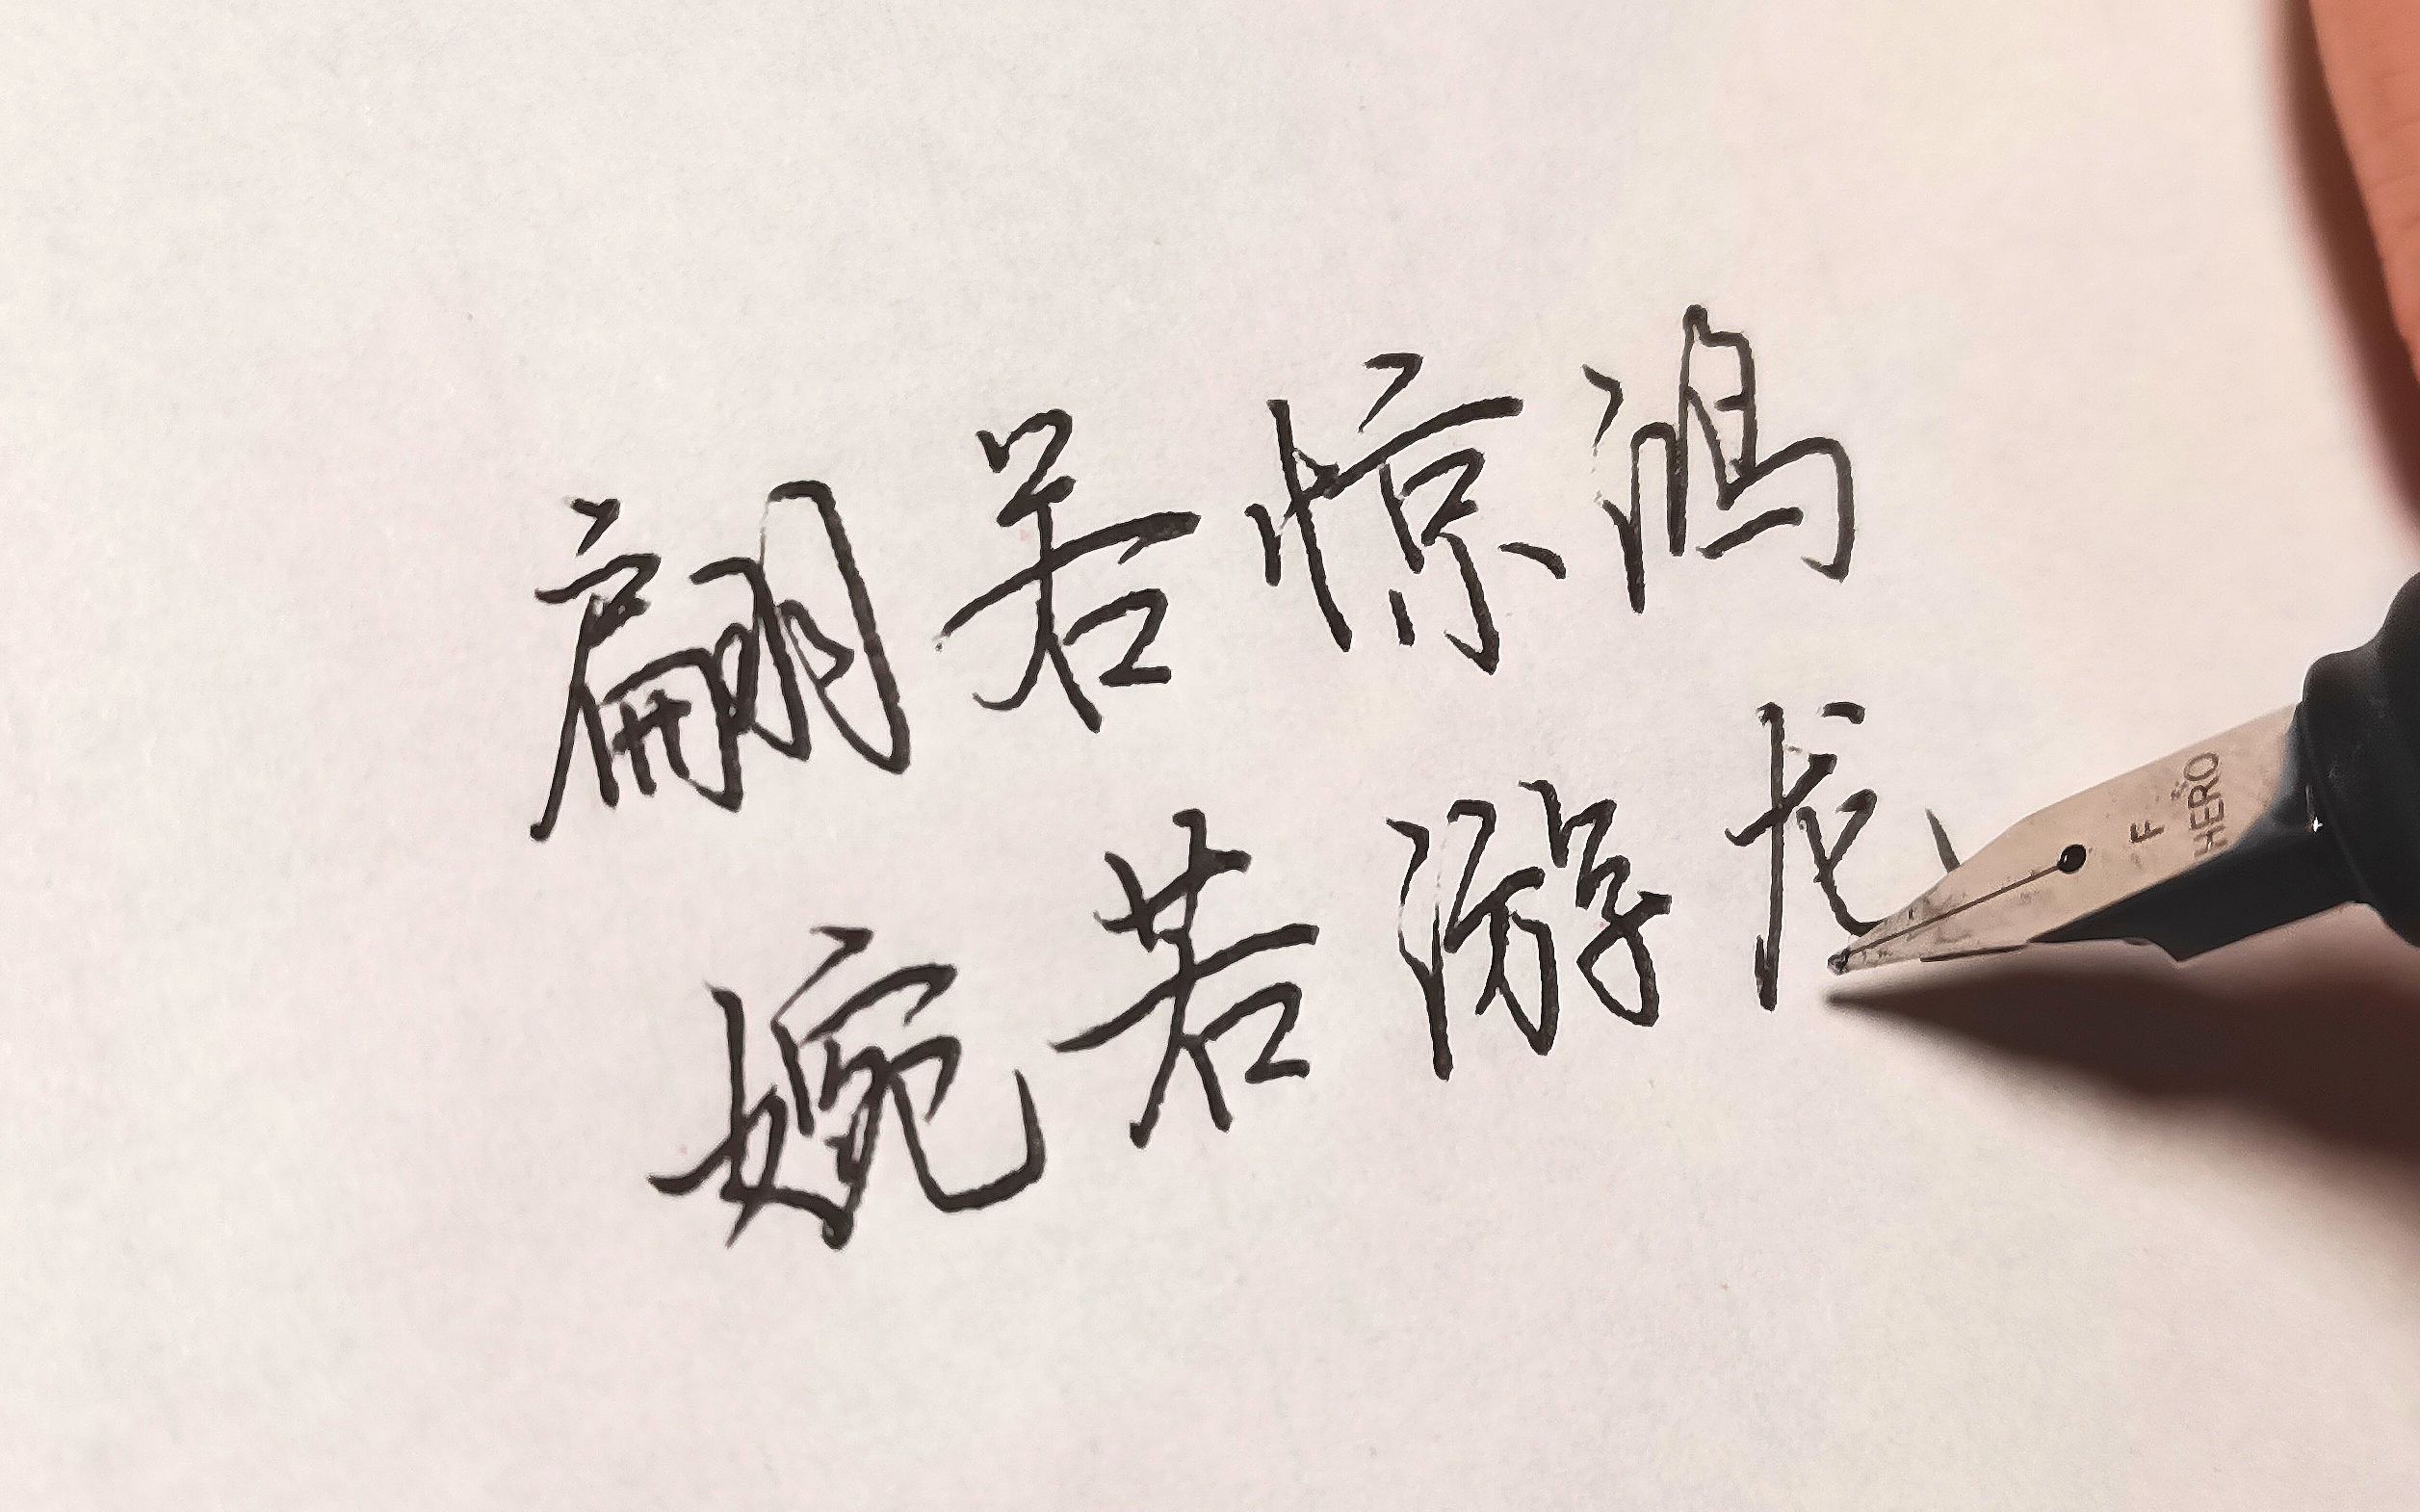 翩若惊鸿
婉若游龙
F
HERO